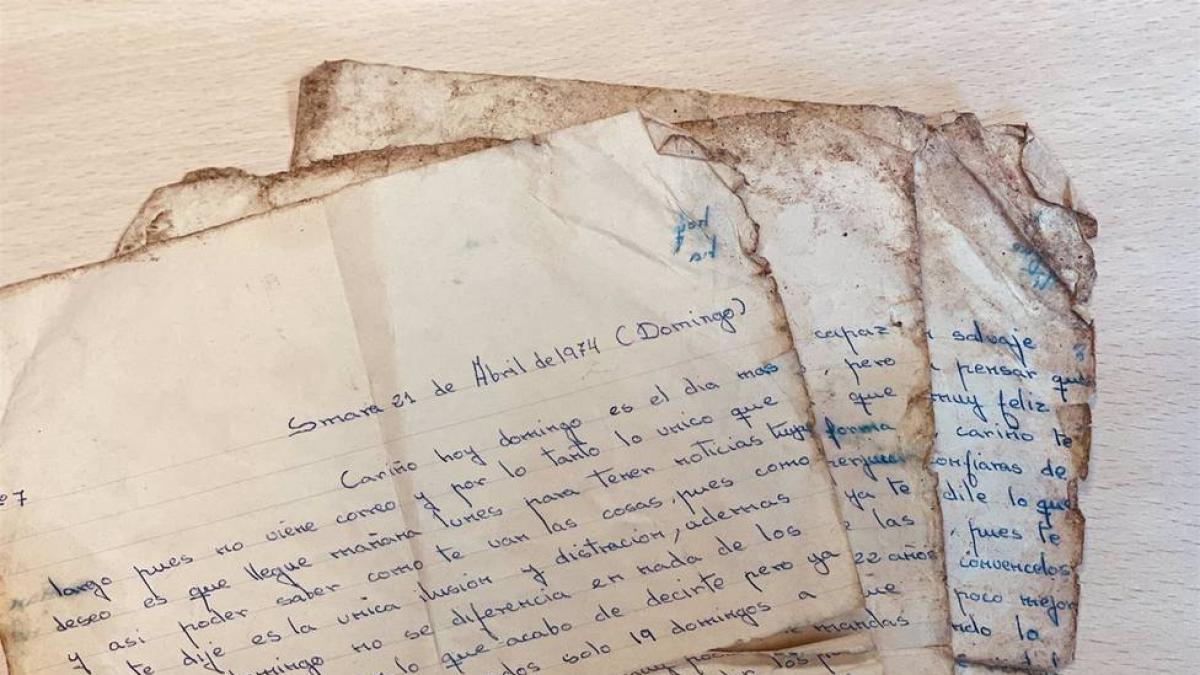 Smara 21 de Abril de 1974 (Domingo)
Cariño hoy domingo es el dia mas
largo pues no viene correo y por lo tanto lo unico que
deseo es que llegue mañana lunes para tener noticias tuyas
y asi poder saber como te van las cosas, pues como
te dije es la unica ilusión y distración, ademas
domingo no se diferencia en nada de los
lo que acabo de decirte pero ya
solo 19 domingos a
capaz
pero
que
forma
ya te
las
22 años
que
mandas
salvaje
pensar que
muy feliz
cariño te
confiaras de
dile lo que
, pues te
convencelos
poco mejor
lo